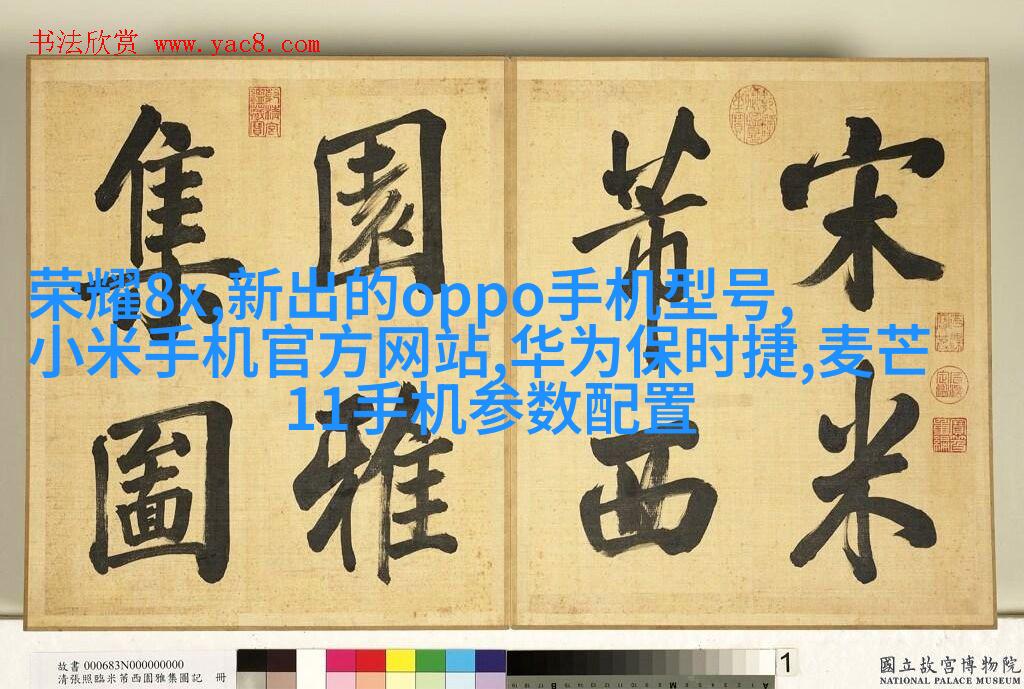 书法欣赏 www.yac8.com
宋米
芾西
園雅
集圖
荣耀8x,新出的oppo手机型号,
小米手机官方网站,华为保时捷,麦芒
11手机参数配置
故書 000683N000000000
清張照臨米芾西園雅集圖記 冊
1
國立故宮博物院
NATIONAL PALACE MUSEUM